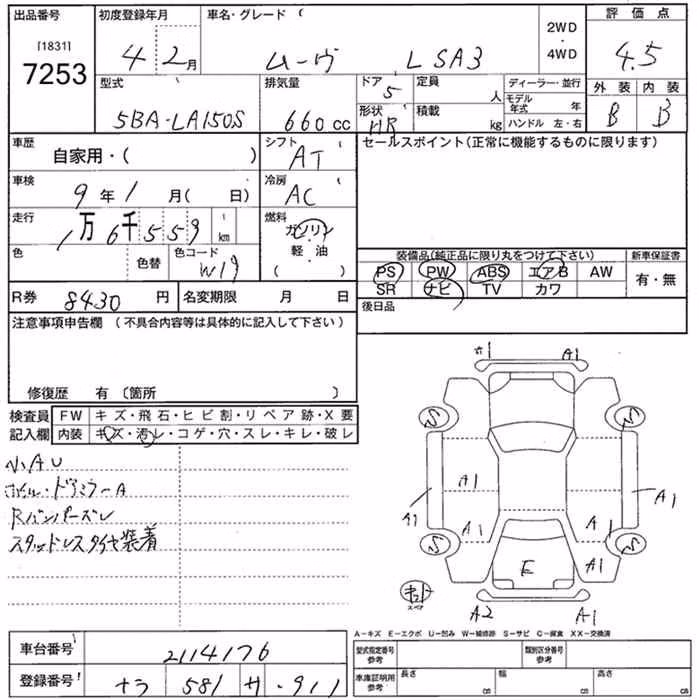 出品番号 初度登録年月 車名・グレード( 評価点
[1831]
7253 4 2月 ムーヴ L SA3 2WD・4WD 4.5
型式 排気量 ドア 定員 ディーラー・並行 外装 内装
5BA-LA150S 660cc 5 人 モデル年式 年 B B
形状 積載 ハンドル 左・右
HB kg
車歴 シフト セールスポイント(正常に機能するものに限ります)
自家用・( ) AT
車検 9年1月( 日) 冷房 AC
走行 1万6千559km 燃料 ガソリン
軽・油
( )
色 色替 色コード W19
装備品(純正品に限り丸をつけて下さい) 新車保証書
PS PW ABS エアB AW 有・無
SR ナビ TV カワ
R券 8430円 名変期限 月 日 後日品
注意事項申告欄(不具合内容等は具体的に記入して下さい)
修復歴 有〔箇所 〕
検査員 FW キズ・飛石・ヒビ割・リペア跡・X要
記入欄 内装 キズ・汚レ・コゲ・穴・スレ・キレ・破レ
小AU
ホイル・ドアミラーA
Rバンパーズレ
スタッドレスタイヤ装着
A1
S S
A1 A1
A1 A1
A1 A
S S
E A1
キット
スペア
A2 A1
A-キズ E-エクボ U-凹み W-補修跡 S-サビ C-腐食 XX-交換済
車台番号 2114176 型式指定番号 参考 類別区分番号 参考
登録番号 ナラ 581 サ ・911 車庫証明用 参考 長さ cm 幅 cm 高さ cm